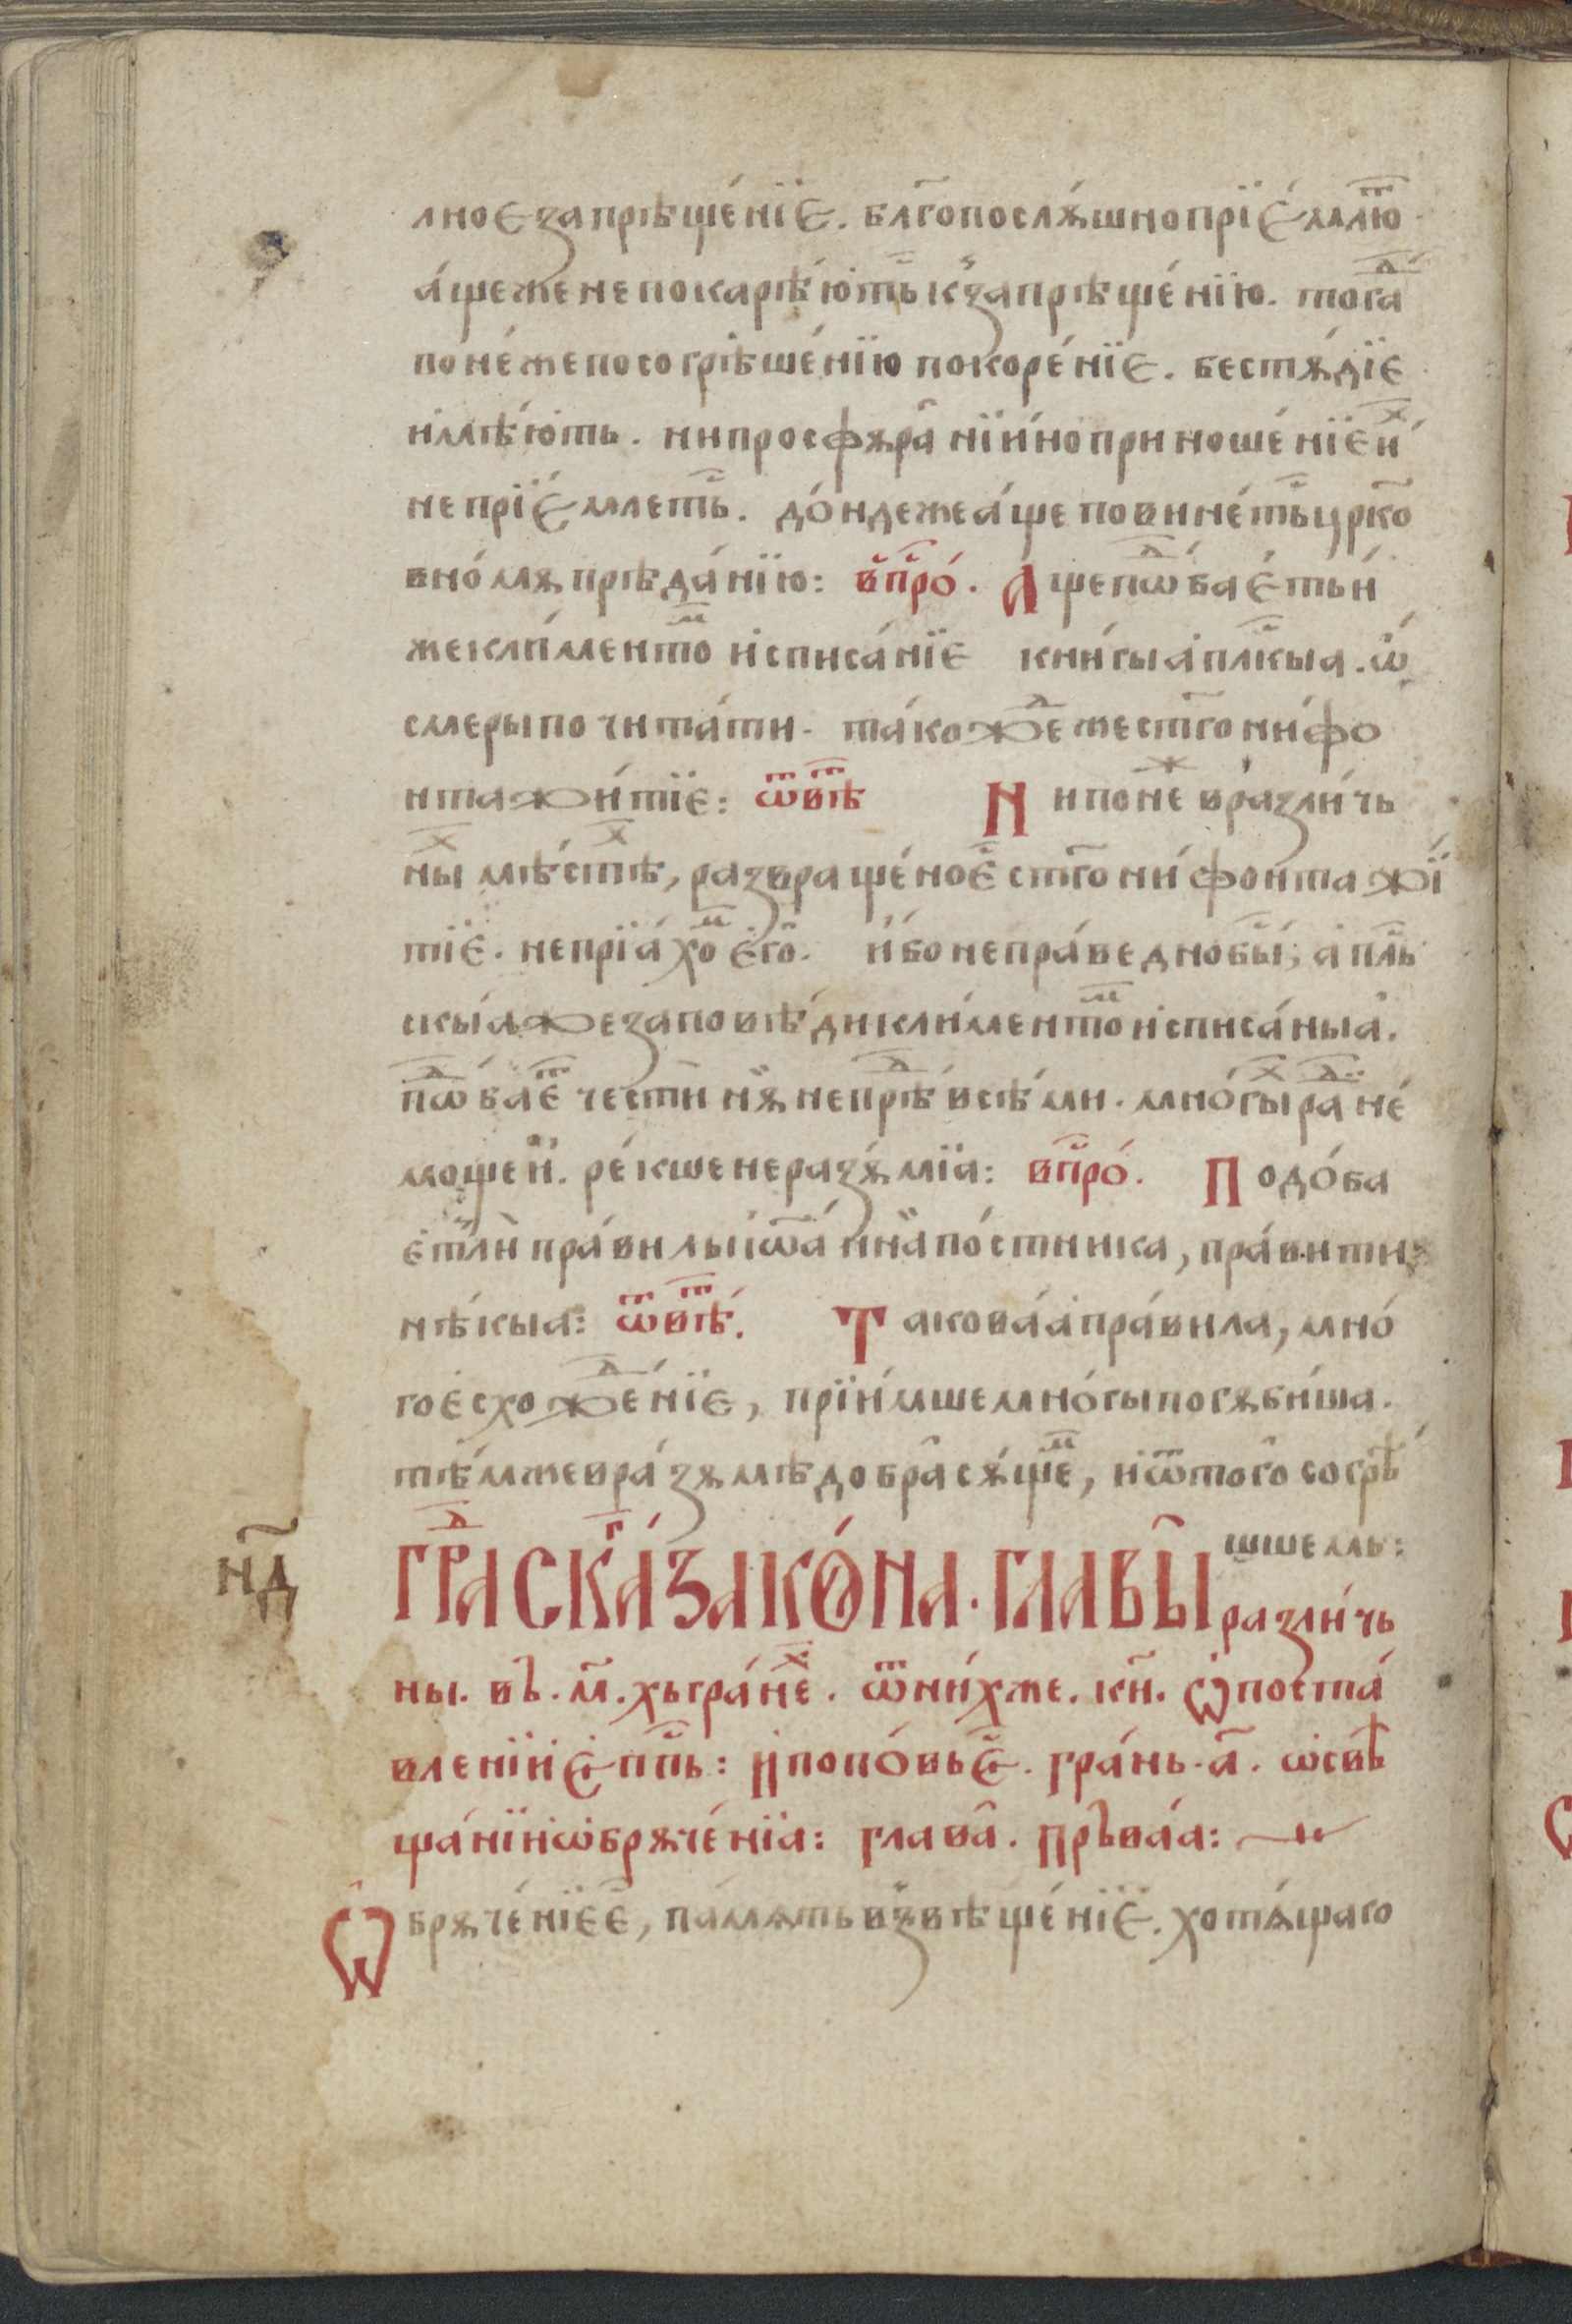 лноє запрѣще́нїє. бл҃гопослꙋ́шно прїе́млютⷮ.
а́ще же не покарѣ́ютъ к̾запрѣще́нїю. тогдⷣа
поне́же по согрѣше́нїю покоре́нїє. бестꙋ́дїє
и҆мѣ́ють. ни просфꙋра̀ нїи҆но приноше́нїє и҆хⷯ
не прїе́млетъ. до́ндеже а́ще повине́тъ црк҃о
вно́мꙋ прѣда́нїю: впр҃о́. А҆ще пѡⷣба́єть и҆́
же кли́ментоⷨ и҆списа́нїє кни́гы а҆пⷭ҇лкыа. ѻ҆
смеры почита́ти. та́кожⷣе же ст҃го ни́фо
нта жи́тїє: ѿвѣⷮ Ни понеⷤ в̾разли́чь
ныⷯ мѣ́стѣⷯ, развраще́ноє҆ ст҃го ни́фонта жї́
тїє. не прїа́хоⷨ є҆го̀. и҆́бо не пра́ведно бы́; а҆пл҃ь
скы́аже за́повѣди кли́ментоⷨ и҆списа́ныа̀.
пѡⷣба́єⷮ чести нꙋ̀ не прѣⷣ всѣ́ми. мно́гыⷯ раⷣ не́
мощеи҆. ре́кше неразꙋ́мїа: впр҃о́. Подо́ба
є҆тли̾ пра́вилы і҆ѡа́нна по́стника, пра́вити
нѣ́кыа: ѿвѣⷮ. Такова́а пра́вила, мно́
гоє҆ схожⷣе́нїє, прїи́мше мно́гы погꙋби́ша.
тѣ́мже в̾ра́зꙋмѣ добра̀ сꙋ́щеⷨ, и҆ ѿтого̀ согрѣ́
шшемь:
н҃д
ГРАⷣСКАⷢ҇ ЗАКО́НА. ГЛАВЫ̀ разли́чь
ны. въ. м҃. хь гра́неⷯ. ѿни́хже. кн҃. Ѡ҆ поста́
вленїи є҆пⷭ҇пь: и҆ попо́вь є҆. гра́нь. а҃. ѡ҆свѣ
ща́нїи и҆ ѡ҆брꙋче́нїа: глава̀. пръва́а:
Ѡ҆брꙋче́нїє є҆̀, па́мѧть в̾звѣще́нїє. хотѧ́щаго